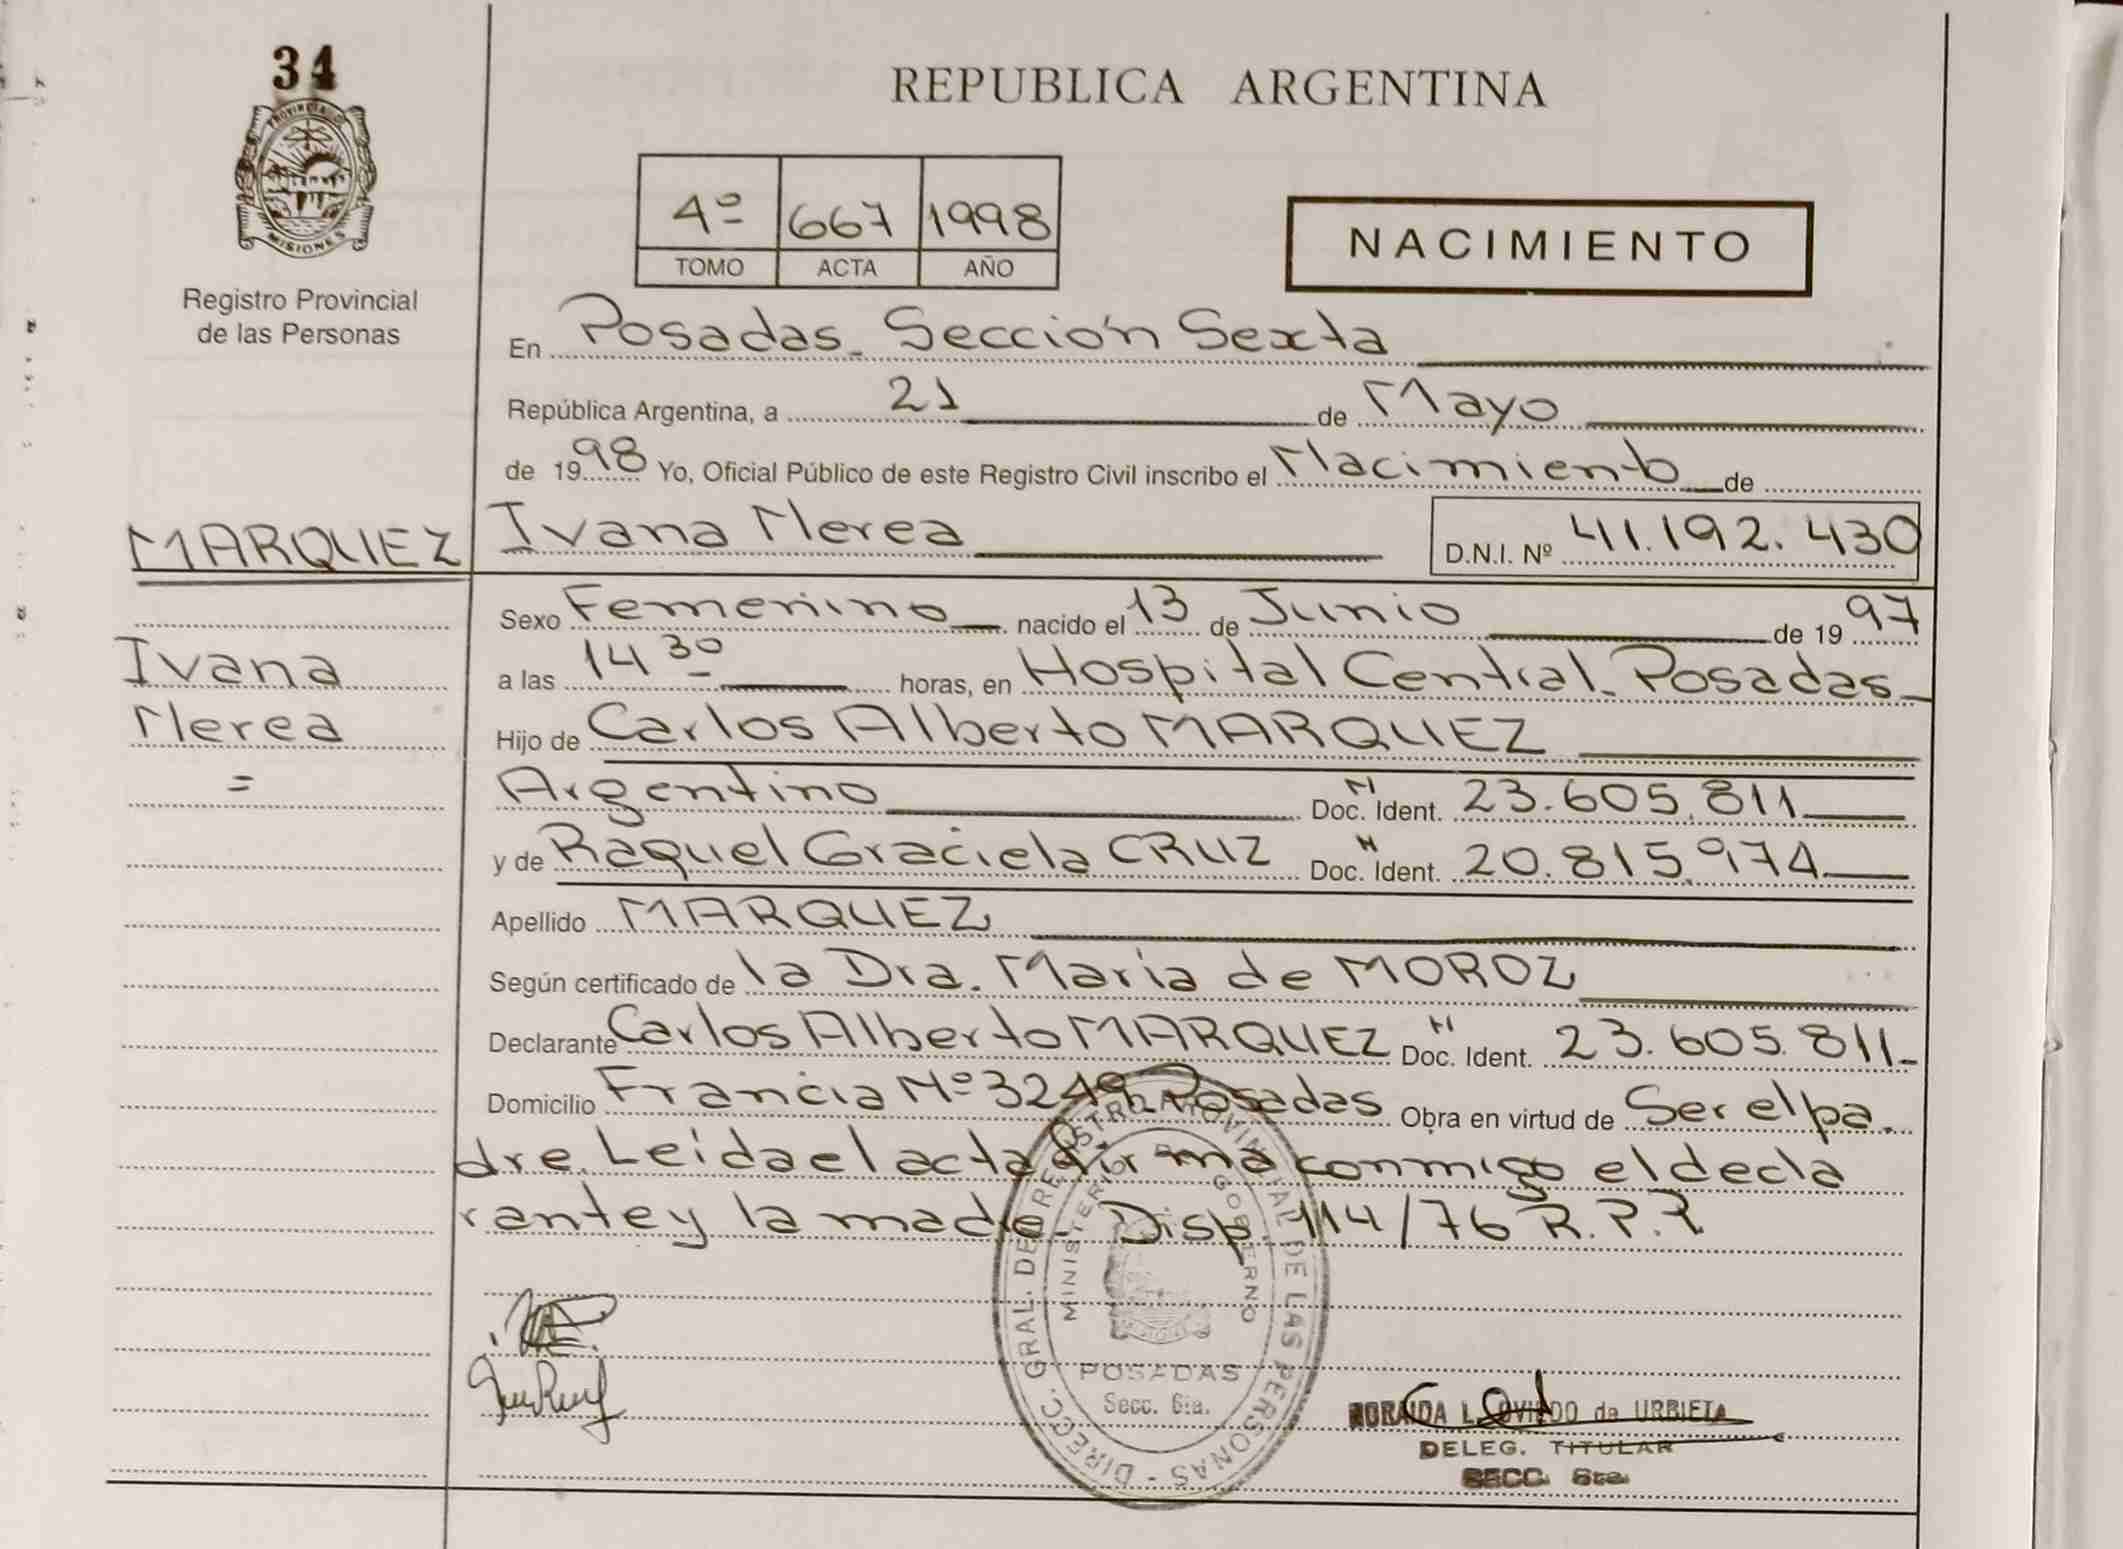 34
PROVINCIA DE
MISIONES
Registro Provincial
de las Personas
REPUBLICA ARGENTINA
4º 667 1998
TOMO ACTA AÑO
NACIMIENTO
En Posadas Sección Sexta
República Argentina, a 21 de Mayo
de 1998 Yo, Oficial Público de este Registro Civil inscribo el Nacimiento de
MARQUEZ Ivana Nerea D.N.I. Nº 41.192.430
Sexo Femenino nacido el 13 de Junio de 1997
Ivana a las 14 30 horas, en Hospital Central Posadas
Nerea Hijo de Carlos Alberto MARQUEZ
= Argentino N Doc. Ident. 23.605.811
y de Raquel Graciela CRUZ N Doc. Ident. 20.815.974
Apellido MARQUEZ
Según certificado de la Dra. Maria de MOROZ
Declarante Carlos Alberto MARQUEZ N Doc. Ident. 23.605.811
Domicilio Francia Nº 3249 Posadas Obra en virtud de Ser el pa
dre. Leida el acta firma conmigo el decla
rante y la madre Disp. 114/76 R.P.P
DIRECC. GRAL. DE REGISTRO PROVINCIAL DE LAS PERSONAS
MINISTERIO DE GOBERNO
POSADAS
Secc. 6ta.
NORAIDA L. OVIEDO de URBIETA
DELEG. TITULAR
SECC. 6ta.